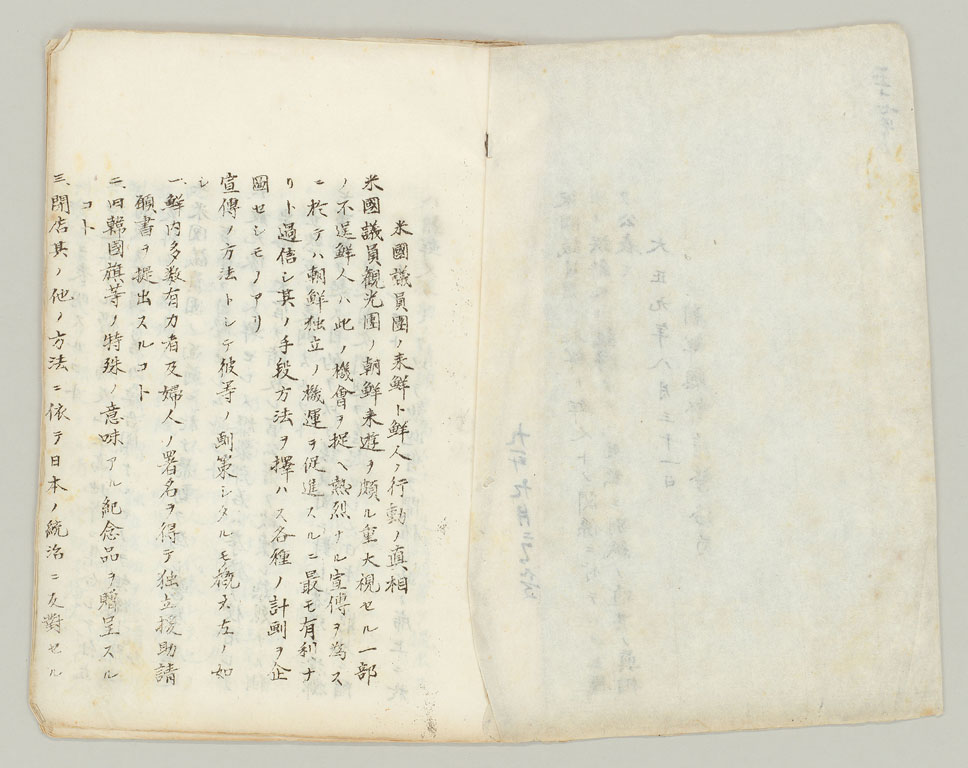 米國議員團ノ来鮮ト鮮人ノ行動ノ真相
米國議員觀光團ノ朝鮮来遊ヲ頗ル重大視セル一部
ノ不逞鮮人ハ此ノ機會ヲ捉ヘ熱烈ナル宣傳ヲ為ス
ニ於テハ朝鮮独立ノ機運ヲ促進スルニ最モ有利ナ
リト過信シ其ノ手段方法ヲ擇ハス各種ノ計劃ヲ企
圖セシモノアリ
宣傳ノ方法トシテ彼等ノ劃策シタルモ概夫左ノ如
シ
一、鮮内多数有力者及婦人ノ署名ヲ得テ独立援助請
願書ヲ提出スルコト
二、旧韓國旗等ノ特殊ノ意味アル紀念品ヲ贈呈スル
コト
三、閉店其ノ他ノ方法ニ依テ日本ノ統治ニ反對セル